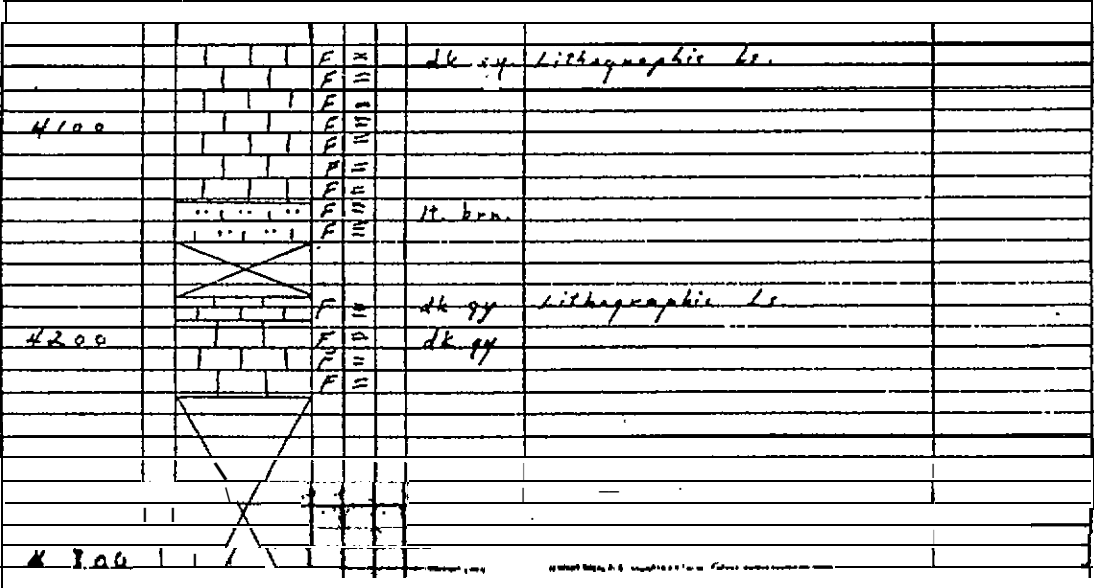 F dk gy. Lithographic Ls.
F =
F =
4100 F =
F =
F =
F =
F = lt. brn.
F =
F = dk gy Lithographic Ls.
4200 F = dk gy
F =
F =